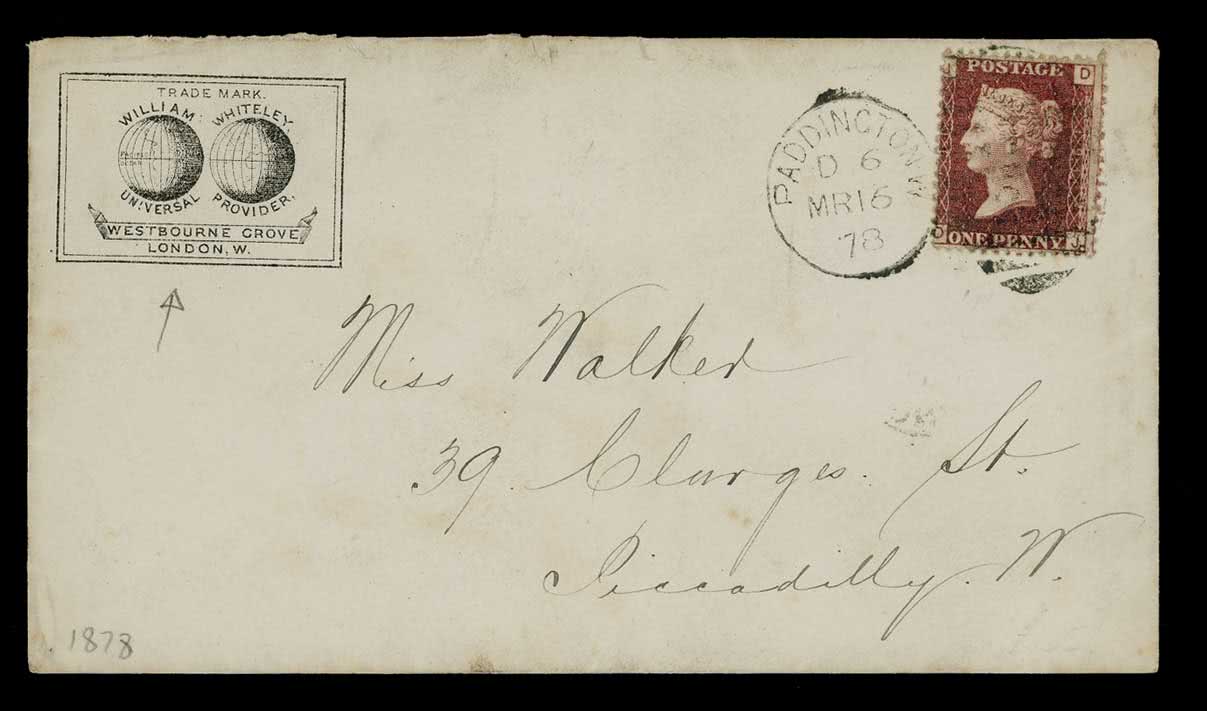 TRADE MARK.
WILLIAM WHITELEY,
UNIVERSAL PROVIDER,
WESTBOURNE GROVE
LONDON, W.
PADDINGTON W
D 6
MR 16
78
J POSTAGE D
D ONE PENNY J
Miss Walker
39 Clarges St.
Piccadilly. W.
1878